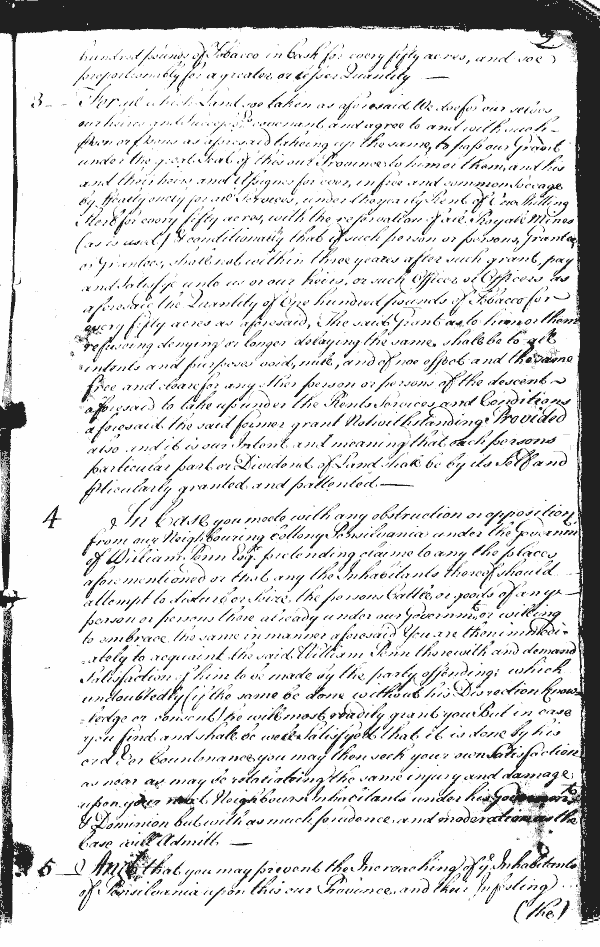 2
hundred pounds of Tobacco in Cask for every fifty acres, and soe
proportionably for a greater or lesser Quantity —
3 — For all which Land soe taken as aforesaid We doe for our selves
our heires and Successors Covenant and agree to and with such
person or persons as aforesaid takeing up the same, to pass our Grant
under the great Seal of this our Province to him or them, and his
and their heires and Assignes for ever, in free and common Soccage
by fealty only for all Services, under the yearly Rent of One Shilling
Sterl for every fifty acres, with the reservation of all Royall Mines
(as is usual) & conditionally that if such person or persons, Grantee
or Grantees, shall not within three yeares after such grant, pay
and satisfye unto us or our heires, or such Officer or Officers as
aforesaid the Quantity of One hundred pounds of Tobacco for
every fifty acres as aforesaid, The said Grant as to him or them
refuseing denying or longer delaying the same, shall be to all
intents and purposes void, null, and of noe effect and the same
free and cleare for any other person or persons of the descent
aforesaid to take up under the Rents Services and Conditions
aforesaid the said former grant Notwithstanding Provided
also and it is our Intent and meaning that each persons
particular part or Dividend of Land shall be by its Self and
pticularly granted and pattented —
4 In Case you meete with any obstruction or opposition
from our Neighbouring Collony Pensilvania under the
of William Penn Esqr pretending claime to any the places
aforementioned or that any the Inhabitants thereof should
attempt to disturb or Seize the persons Cattle or goods of any
person or persons there already under our Governmt or willing
to embrace the same in manner aforesaid You are then immedi-
ately to acquaint the said William Penn therewith and demand
Satisfaction of him to be made by the party offending; which
undoubtedly (if the same be done without his Direction know-
ledge or consent) he will most readily grant you But in case
you find and shall be well Satisfyed that it is done by his
ord or Countenance you may then seek your own Satisfaction
as near as may be retaliating the same injury and damage
upon your next Neighbours Inhabitants under his
& Dominion but with as much prudence and moderation as the
Case will Admitt. —
5 — And that you may prevent the Incroaching of ye Inhabitants
of Pensilvania upon this our Province and their Infesting
(the)